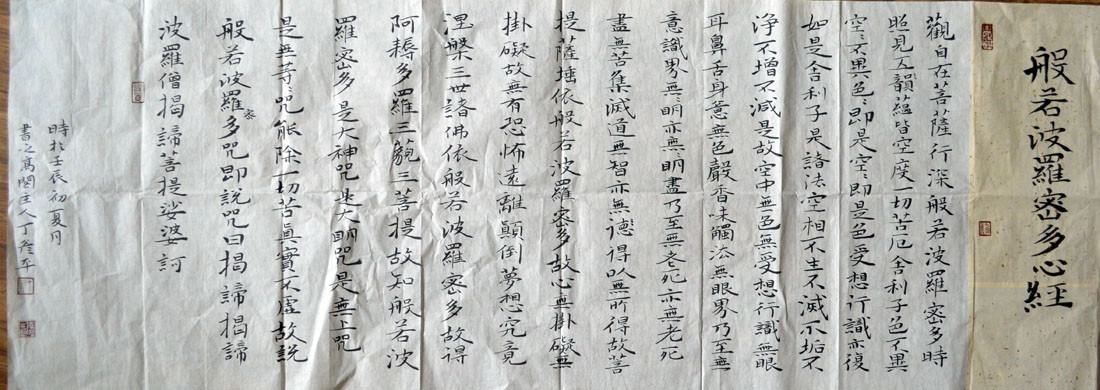 般若波羅密多心經
觀自在菩薩行深般若波羅密多時
照見五韻蘊皆空度一切苦厄舍利子色不異
空〻不異色〻即是空〻即是色受想行識亦復
如是舍利子是諸法空相不生不滅不垢不
淨不增不減是故空中無色無受想行識無眼
耳鼻舌身意無色聲香味觸法無眼界乃至無
意識界無〻明亦無〻明盡乃至無老死亦無老死
盡無苦集滅道無智亦無德得以無所得故菩
提薩埵依般若波羅密多故心無掛礙無
掛礙故無有恐怖遠離顛倒夢想究竟
涅槃三世諸佛依般若波羅密多故得
阿耨多羅三藐三菩提故知般若波
羅密多是大神咒是大明咒是無上咒
是無等〻咒能除一切苦真實不虛故說
般若波羅密多咒即說咒曰揭諦揭諦
波羅僧揭諦菩提娑婆訶
時於壬辰初夏月
書之高閣主人丁